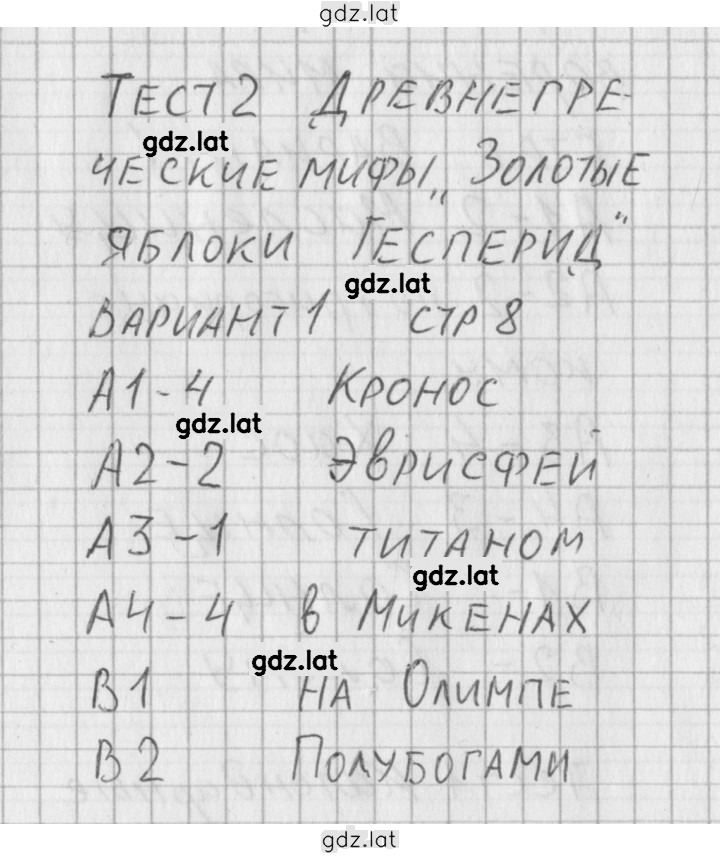 gdz.lat
ТЕСТ 2 ДРЕВНЕГРЕ-
gdz.lat
ЧЕСКИЕ МИФЫ „ЗОЛОТЫЕ
ЯБЛОКИ ГЕСПЕРИД"
gdz.lat
ВАРИАНТ 1 СТР 8
А1-4 КРОНОС
gdz.lat
А2-2 ЭВРИСФЕЙ
А3-1 ТИТАНОМ
gdz.lat
А4-4 В МИКЕНАХ
gdz.lat
В1 НА ОЛИМПЕ
В2 ПОЛУБОГАМИ
gdz.lat